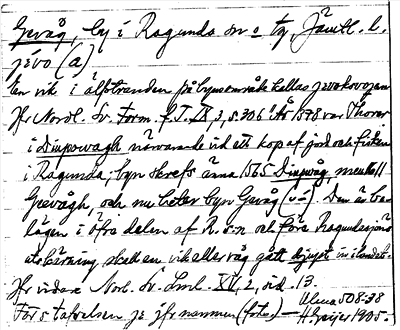 Gevåg, by i Ragunda sn o tg, Jämtl. l.
jévo (a)
En vik i älfstranden på byns område kallas jevokvojen
Jfr Nordl. Sv. Form. f. T. IX, 3, s. 306: År 1508 var Thorer
i Diupowagh närvarande vid ett köp af jord och fiske
i Ragunda; byn skrefs ännu 1565 Diupwåg, men 1611
Gievågh, och nu heter byn Gevåg (u-i). Den är be-
lägen i öfra delen af R. s:n och före Ragundasjöns
uttömning skall en vik eller våg gått djupt in i landet.
Jfr vidare Norl. Sv. Lml. XV, 2, sid. 13.
För stafvelsen je jfr namnen (foto.) — Ulena 508:38
H. Geijer 1905.